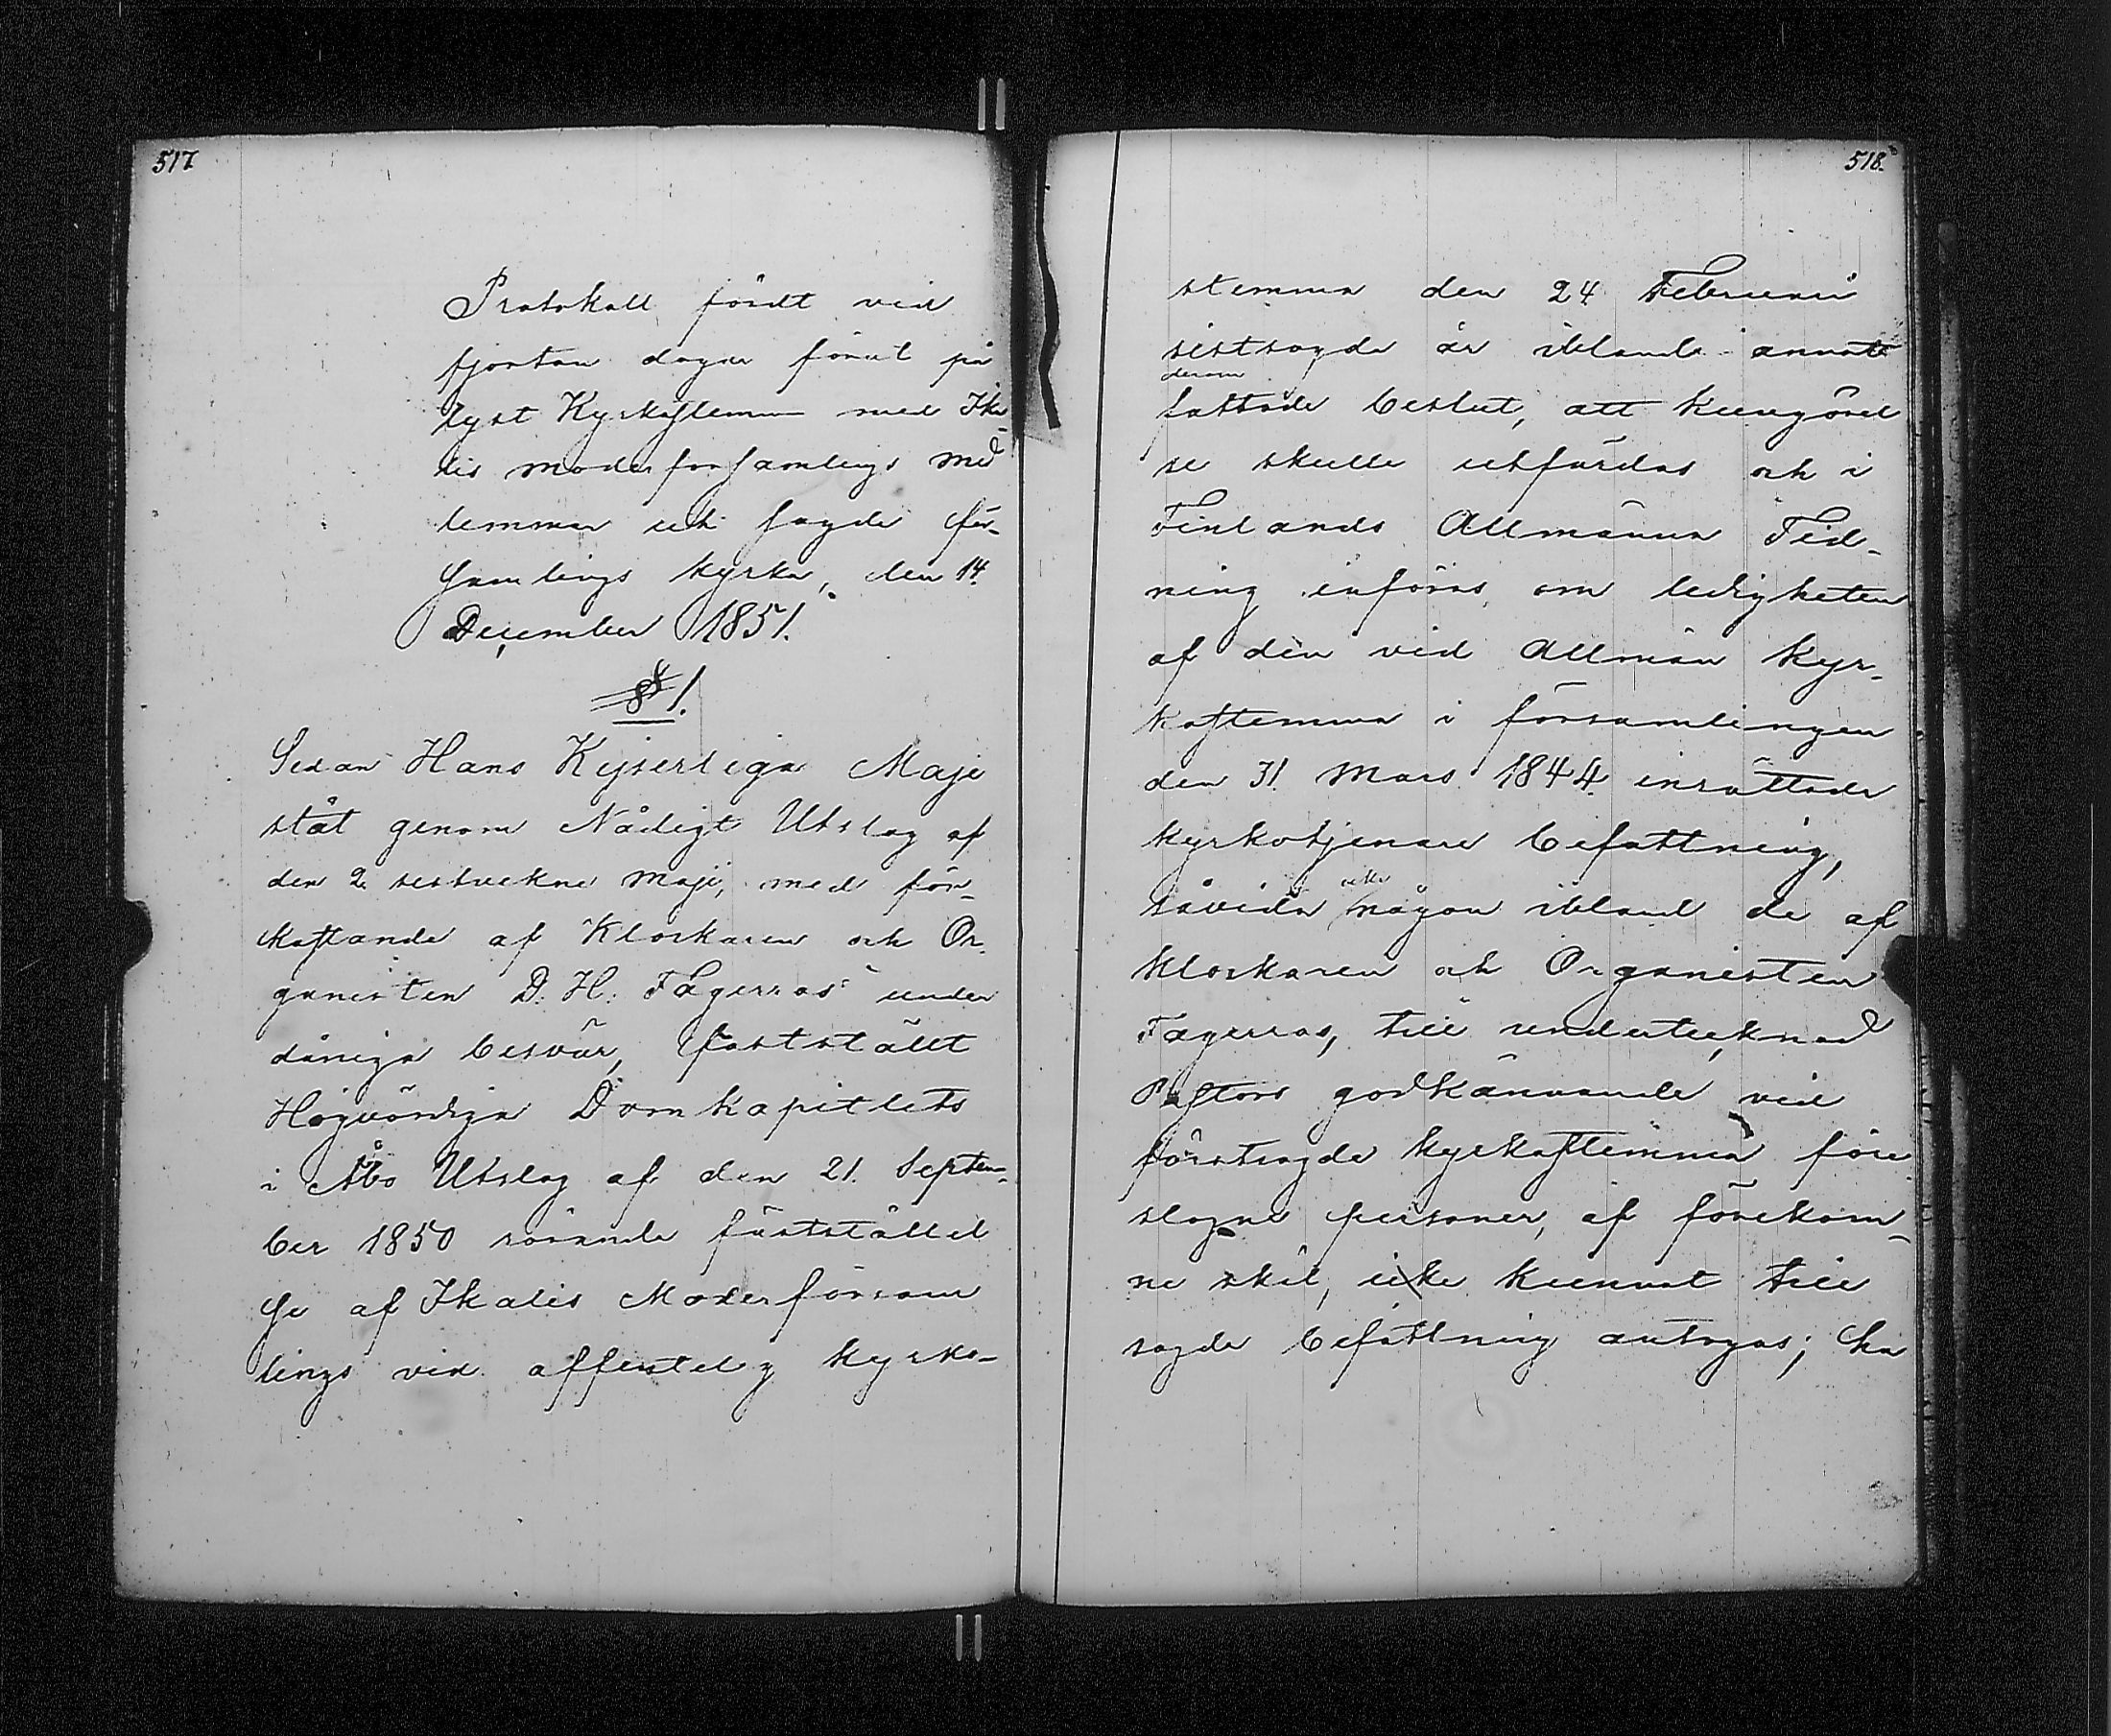 517
Protokoll fördt vid
fjorton dagar förut på
lyst Kyrkostemma med Ika
lis moderförsamlings med
lemmar uti sagde för-
samlings kyrka, den 14.
December 1851.
§ 1.
Sedan Hans Kejserliga Maje
stät genom Nådigt Utslag af
den 2 sistvekne Maji, med för-
kastande af Klockaren och Or-
ganisten D. H. Fagerros under
dåniga besvär, fastställt
Högvördiga Domkapitlets
i Åbo Utslag af den 21. Septem-
ber 1850 rörande fastställel
se af Ikalis Moderförsam
lings vid offentelig kyrko-
518.
stemma den 24 Februari
sistsagde år ibland annat
derom
fattade beslut, att kungörel
se skulle utfärdas och i
Finlands Allmänna Tid-
ning införas, om ledigheten
af den vid Allmän Kyr-
kostemma i församlingen
den 31. Mars 1844. inrättade
kyrkotjenare befattning,
såvida någon ibland de af
Klockaren och Organisten
Fagerros, till undertecknad
Pastors godkännande vid
förstsagde kyrkostemma före
slagne personer, af förekom-
ne skäl, icke kunnat till
sagde befattning antagas; ha